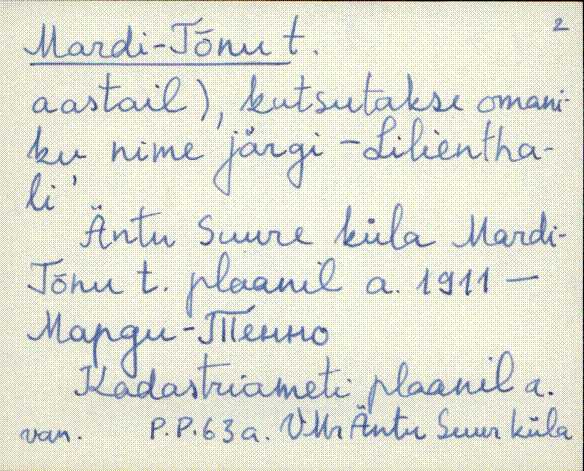 2
Mardi-Tõnu t.
aastail), kutsutakse omani-
ku nime järgi - Lilientha-
li'
Äntu Suure küla Mardi-
Tõnu t. plaanil a. 1911 —
Марди-Тенно
Kadastriameti plaanil a.
van. P.P.63a. VMr Äntu Suur küla